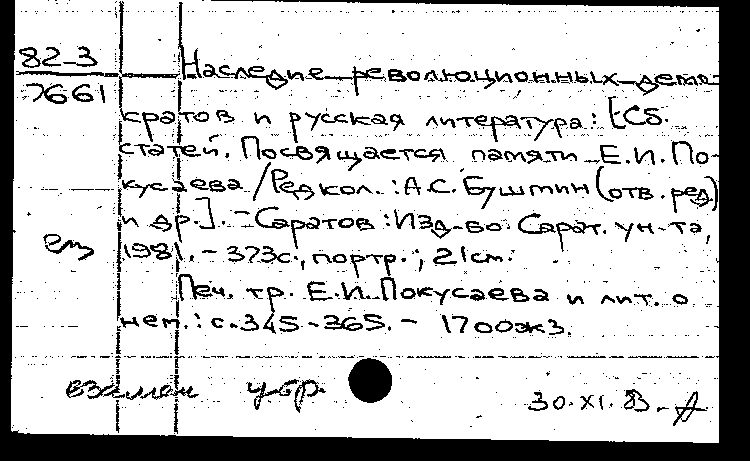 82-3
7661
Наследие революционных демо-
кратов и русская литература: [Сб.
статей. Посвящается памяти Е.И. По-
кусаева / Редкол.: А.С. Бушмин (отв. ред)
и др.]. - Саратов: Изд-во Сарат. ун-та,
1981. - 373с., портр.; 21см.
Печ. тр. Е.И. Покусаева и лит. о
нем.: с. 345-365. - 1700экз.
взамен утр.
30.XI.83.